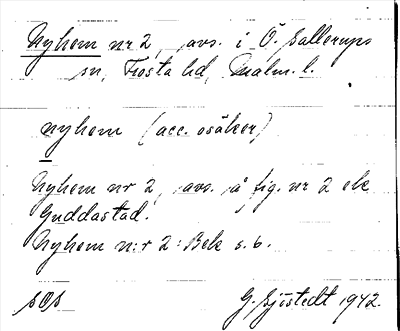 Nyhem nr 2, avs. i Ö. Sallerups
sn, Frosta hd, Malm. l.
nyhem (acc. osäker)
Nyhem nr 2, avs. å fig. nr 2 ek
Guddastad.
Nyhem n:r 2: Bek s. 6.
SOS G. Sjöstedt 1942.